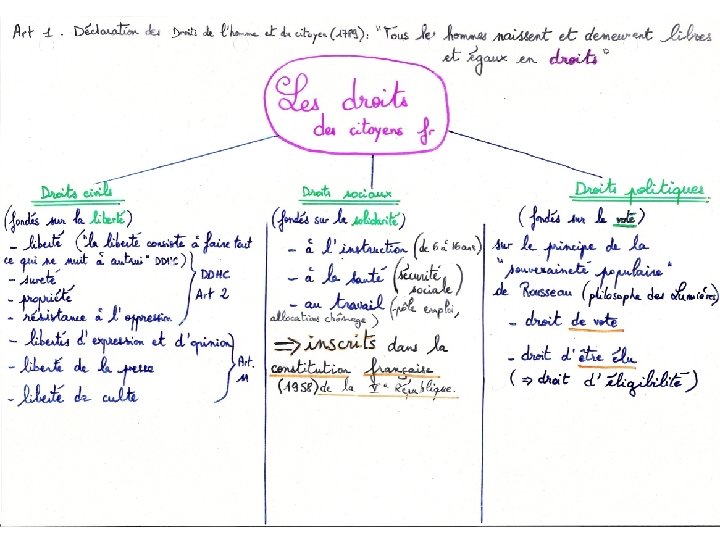 Art 1. Déclaration des Droits de l'homme et du citoyen (1789) : "Tous les hommes naissent et demeurent libres
et égaux en droits"
Les droits
des citoyens fr
Droits civils
(fondés sur la liberté)
- liberté ("la liberté consiste à faire tout
ce qui ne nuit à autrui" DDHC)
- sureté
- propriété
- résistance à l'oppression
DDHC
Art 2
- libertés d'expression et d'opinion
- liberté de la presse
- liberté de culte
Art.
11
Droits sociaux
(fondés sur la solidarité)
- à l'instruction (de 6 à 16 ans)
- à la santé (sécurité
sociale)
- au travail (pôle emploi,
allocations chômage)
⇒ inscrits dans la
constitution française
(1958) de la Ve République.
Droits politiques
(fondés sur le vote)
sur le principe de la
"souveraineté populaire"
de Rousseau (philosophe des Lumières)
- droit de vote
- droit d'être élu
(⇒ droit d'éligibilité)